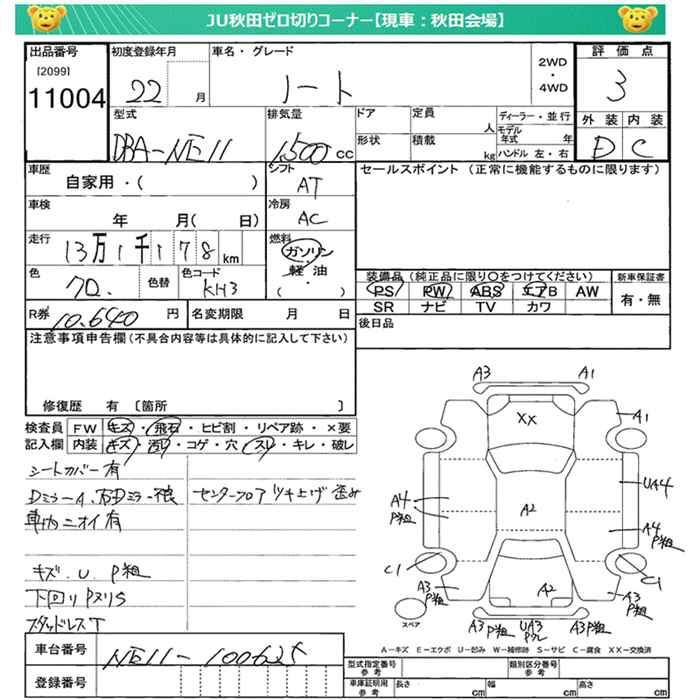 JU秋田ゼロ切りコーナー【現車：秋田会場】
出品番号 初度登録年月 車名・グレード 2WD・4WD 評価点
[2099]
11004 22 月 ノート 3
型式 排気量 ドア 定員 人 ディーラー・並行 外装 内装
DBA-NE11 1,500 cc 形状 積載 kg モデル年式 年 ハンドル 左・右 D C
車歴 シフト セールスポイント (正常に機能するものに限ります)
自家用・( ) AT
車検 年 月( 日) 冷房 AC
走行 13万1千178km 燃料 ガソリン・軽油 ( )
色 色替 色コード KH3
装備品 (純正品に限り○をつけてください) 新車保証書
PS PW ABS エアB AW 有・無
SR ナビ TV カワ
R券 10,640 円 名変期限 月 日
後日品
注意事項申告欄(不具合内容等は具体的に記入して下さい)
修復歴 有 〔箇所 〕
検査員 FW キズ・飛石・ヒビ割・リペア跡・×要
記入欄 内装 キズ・汚れ・コゲ・穴・スレ・キレ・破レ
シートカバー有
Dミラーイ、右Dミラー不良 センターフロアツキ上げ歪み
車内ニオイ有
キズ、U、P粗
下回りPヌリS
スタッドレスT
車台番号 NE11-100625
登録番号
A3 A1
XX A1
UA4
A4 P粗 A2 A4 P粗
C1 C1
A3 P粗 A2 A3 P粗
スペア A3P粗 UA3 Pワレ A3P粗
A－キズ E－エクボ U－凹み W－補修跡 S－サビ C－腐食 XX－交換済
型式指定番号 参考 類別区分番号 参考
車庫証明用 参考 長さ cm 幅 cm 高さ cm